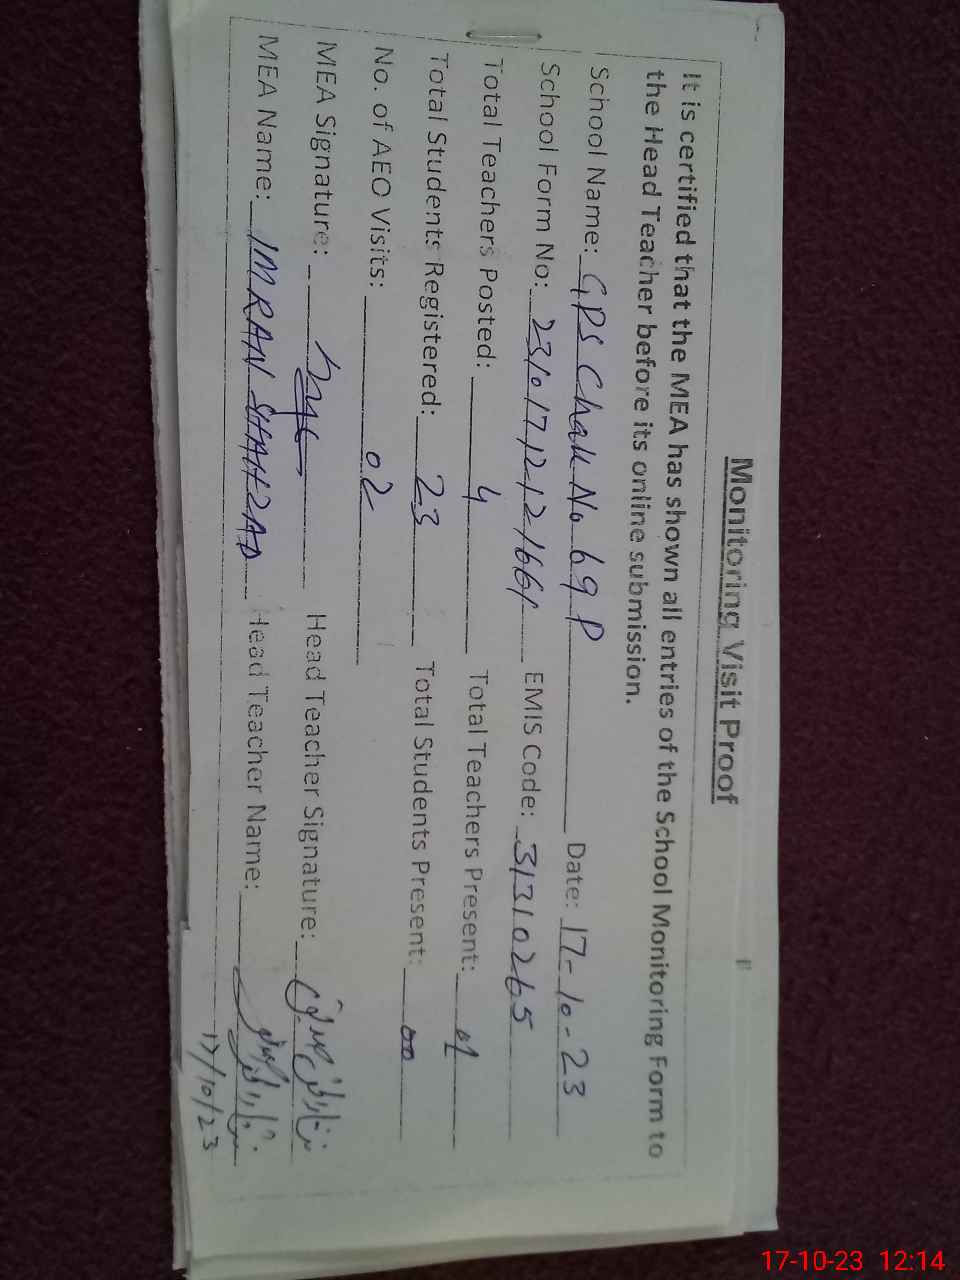 Monitoring Visit Proof
It is certified that the MEA has shown all entries of the School Monitoring Form to
the Head Teacher before its online submission.
School Name: GPS Chak No 69 P Date: 17-10-23
School Form No: 23101712121661 EMIS Code: 31310265
Total Teachers Posted: 4 Total Teachers Present: 01
Total Students Registered: 23 Total Students Present: 00
No. of AEO Visits: 02
MEA Signature: Head Teacher Signature:
MEA Name: IMRAN SHAHZAD Head Teacher Name:
17/10/23
17-10-23 12:14